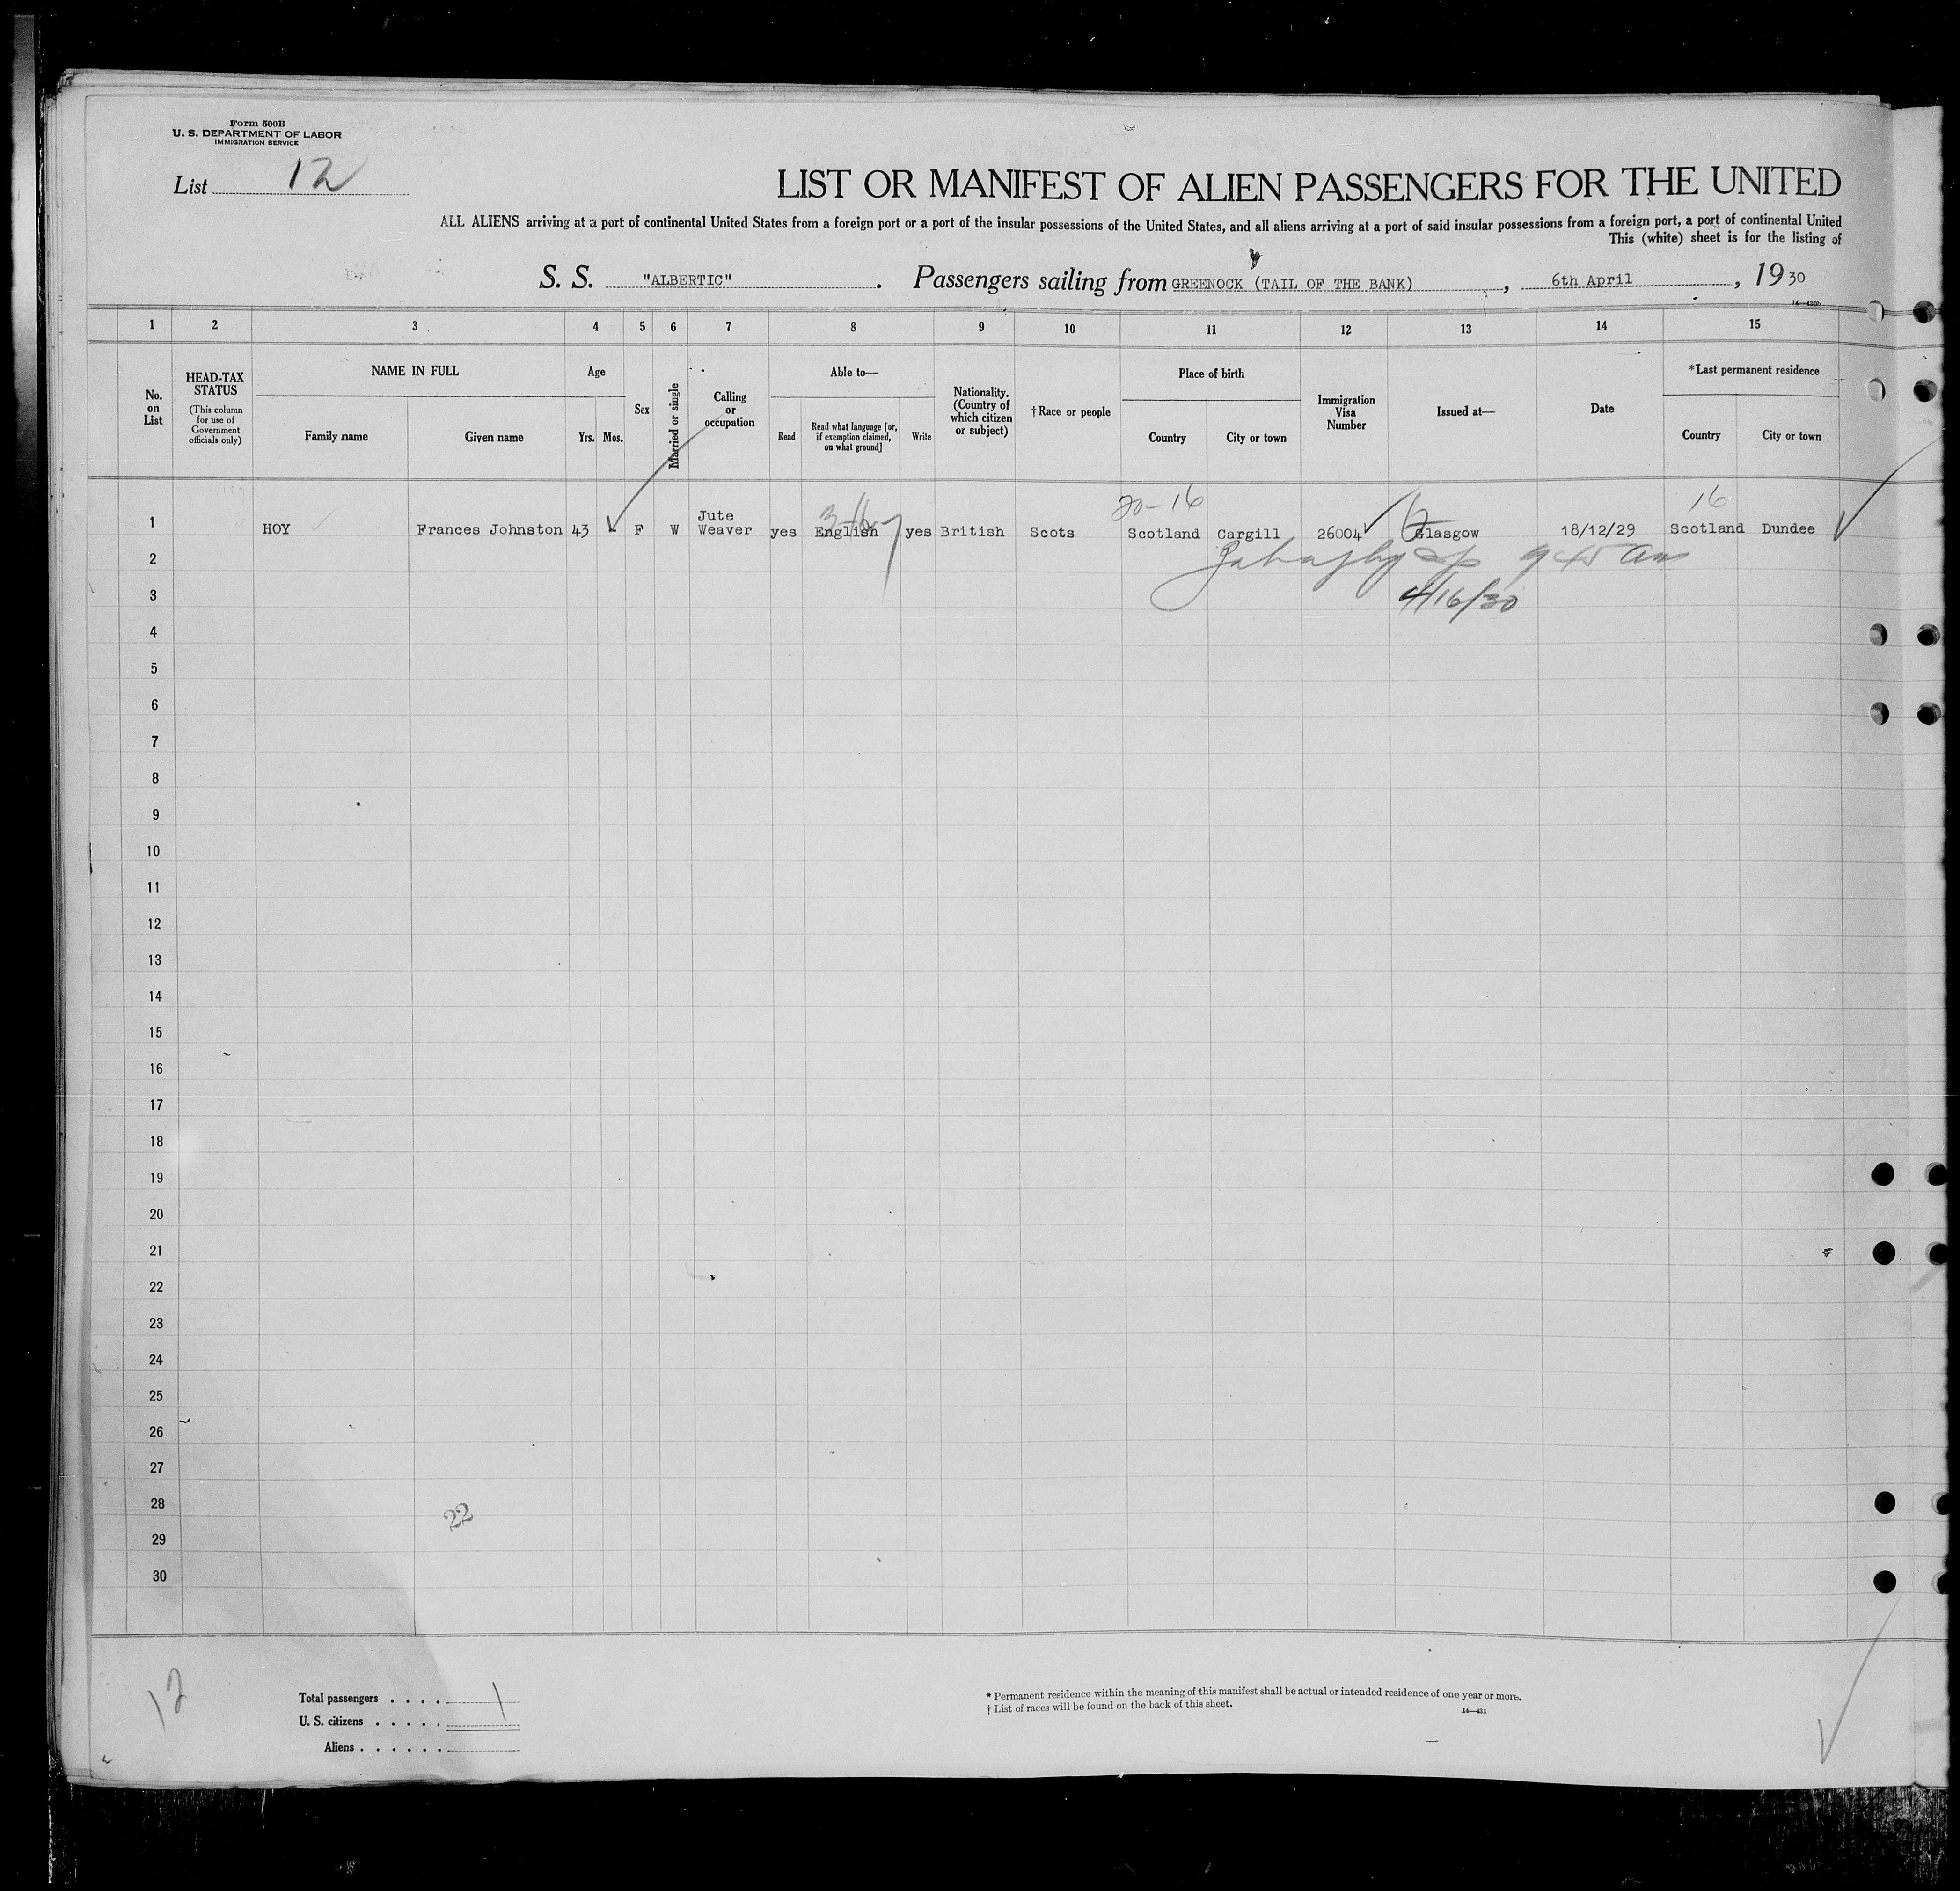 Form 500B
U. S. DEPARTMENT OF LABOR
IMMIGRATION SERVICE
List 12
LIST OR MANIFEST OF ALIEN PASSENGERS FOR THE UNITED
ALL ALIENS arriving at a port of continental United States from a foreign port or a port of the insular possessions of the United States, and all aliens arriving at a port of said insular possessions from a foreign port, a port of continental United
This (white) sheet is for the listing of
S. S. "ALBERTIC". Passengers sailing from GREENOCK (TAIL OF THE BANK), 6th April, 1930
1 2 3 4 5 6 7 8 9 10 11 12 13 14 15
No. on List
HEAD-TAX STATUS
(This column for use of Government officials only)
NAME IN FULL
Family name
Given name
Age
Yrs.
Mos.
Sex
Married or single
Calling or occupation
Able to—
Read
Read what language [or, if exemption claimed, on what ground]
Write
Nationality. (Country of which citizen or subject)
†Race or people
Place of birth
Country
City or town
Immigration Visa Number
Issued at—
Date
*Last permanent residence
Country
City or town
20-16 16
1 HOY Frances Johnston 43 F W Jute Weaver yes English yes British Scots Scotland Cargill 26004 Glasgow 18/12/29 Scotland Dundee
2
3 4/16/30
4
5
6
7
8
9
10
11
12
13
14
15
16
17
18
19
20
21
22
23
24
25
26
27
28 22
29
30
12
Total passengers . . . . 1
U. S. citizens . . . . .
Aliens . . . . . .
* Permanent residence within the meaning of this manifest shall be actual or intended residence of one year or more.
† List of races will be found on the back of this sheet.
14—431